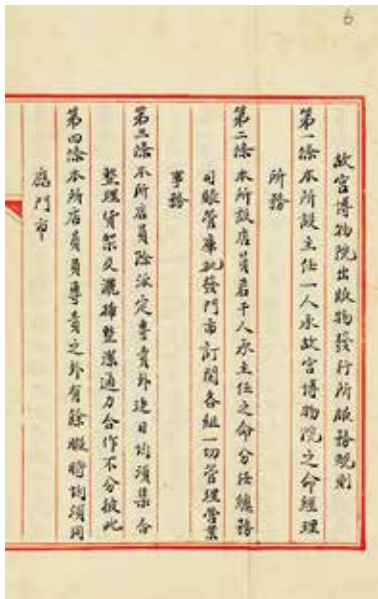 6
故宮博物院出版物發行所服務規則
第一條本所設主任一人承故宮博物院之命經理
所務
第二條本所設店員若干人承主任之命分任總務
司賬管庫批發門市訂閱各組一切管理營業
事務
第三條本所店員除派定專責外逐日均須集合
整理貨架及灑掃整潔通力合作不分彼此
第四條本所店員專責之外有餘暇時均須同
應門市